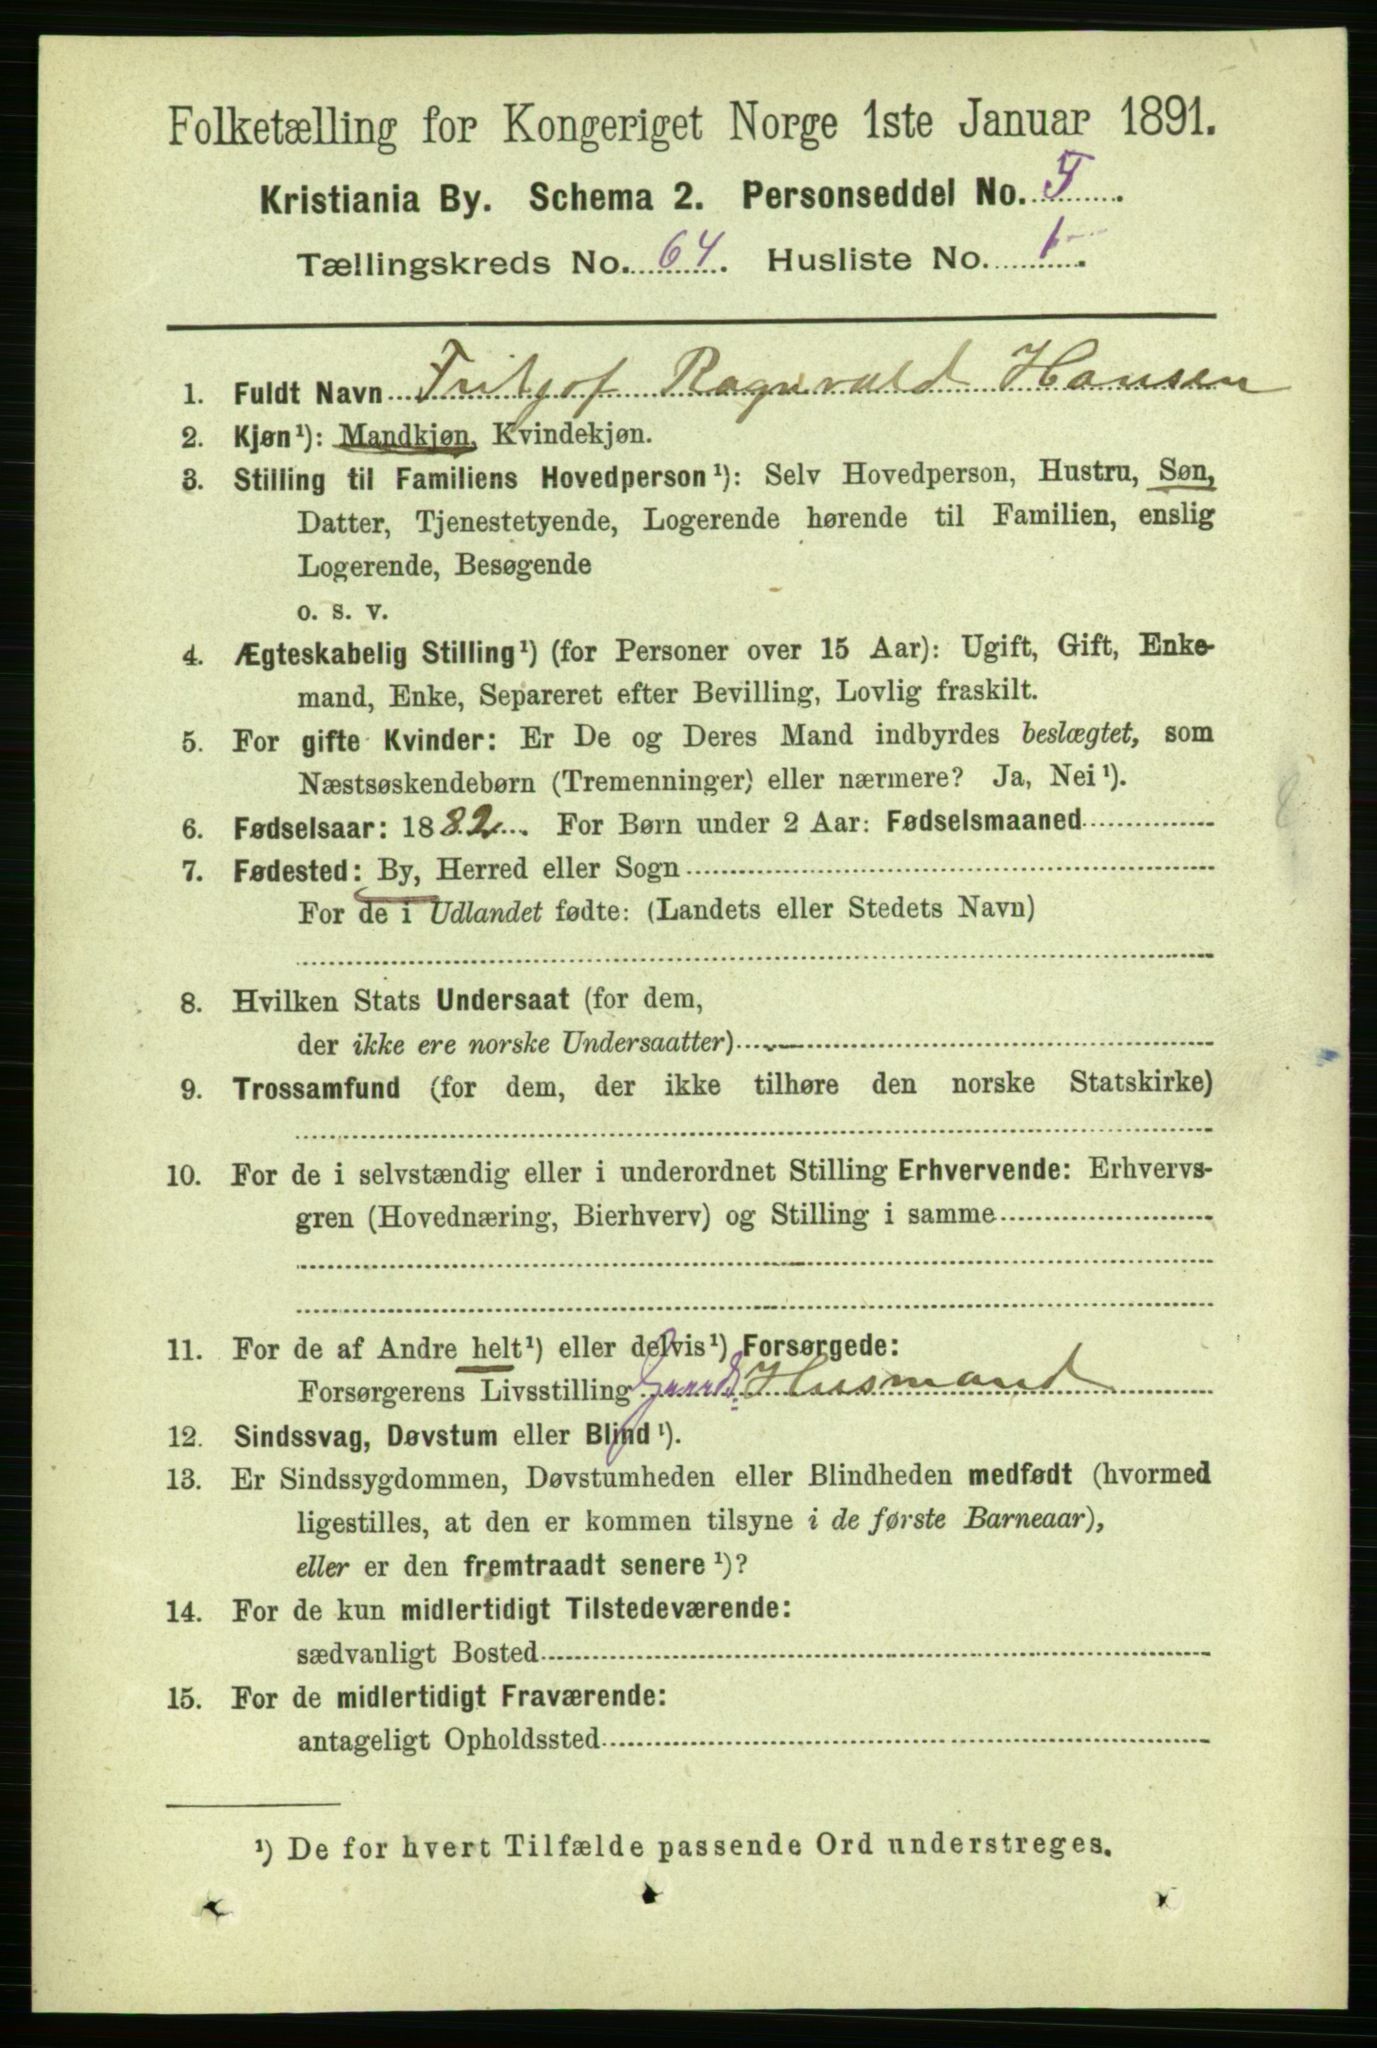 Folketælling for Kongeriget Norge 1ste Januar 1891.
Kristiania By. Schema 2. Personseddel No. 5.
Tællingskreds No. 64. Husliste No. 1.
1. Fuldt Navn Fritjof Ragnvald Hansen
2. Kjøn¹): Mandkjøn, Kvindekjøn.
3. Stilling til Familiens Hovedperson¹): Selv Hovedperson, Hustru, Søn,
Datter, Tjenestetyende, Logerende hørende til Familien, enslig
Logerende, Besøgende
o. s. v.
4. Ægteskabelig Stilling¹) (for Personer over 15 Aar): Ugift, Gift, Enke-
mand, Enke, Separeret efter Bevilling, Lovlig fraskilt.
5. For gifte Kvinder: Er De og Deres Mand indbyrdes beslægtet, som
Næstsøskendebørn (Tremenninger) eller nærmere? Ja, Nei¹).
6. Fødselsaar: 1882. For Børn under 2 Aar: Fødselsmaaned
7. Fødested: By, Herred eller Sogn
For de i Udlandet fødte: (Landets eller Stedets Navn)
8. Hvilken Stats Undersaat (for dem,
der ikke ere norske Undersaatter)
9. Trossamfund (for dem, der ikke tilhøre den norske Statskirke)
10. For de i selvstændig eller i underordnet Stilling Erhvervende: Erhvervs-
gren (Hovednæring, Bierhverv) og Stilling i samme
11. For de af Andre helt¹) eller delvis¹) Forsørgede:
Forsørgerens Livsstilling Gaards Husmand
12. Sindssvag, Døvstum eller Blind¹).
13. Er Sindssygdommen, Døvstumheden eller Blindheden medfødt (hvormed
ligestilles, at den er kommen tilsyne i de første Barneaar),
eller er den fremtraadt senere¹)?
14. For de kun midlertidigt Tilstedeværende:
sædvanligt Bosted
15. For de midlertidigt Fraværende:
antageligt Opholdssted
¹) De for hvert Tilfælde passende Ord understreges.